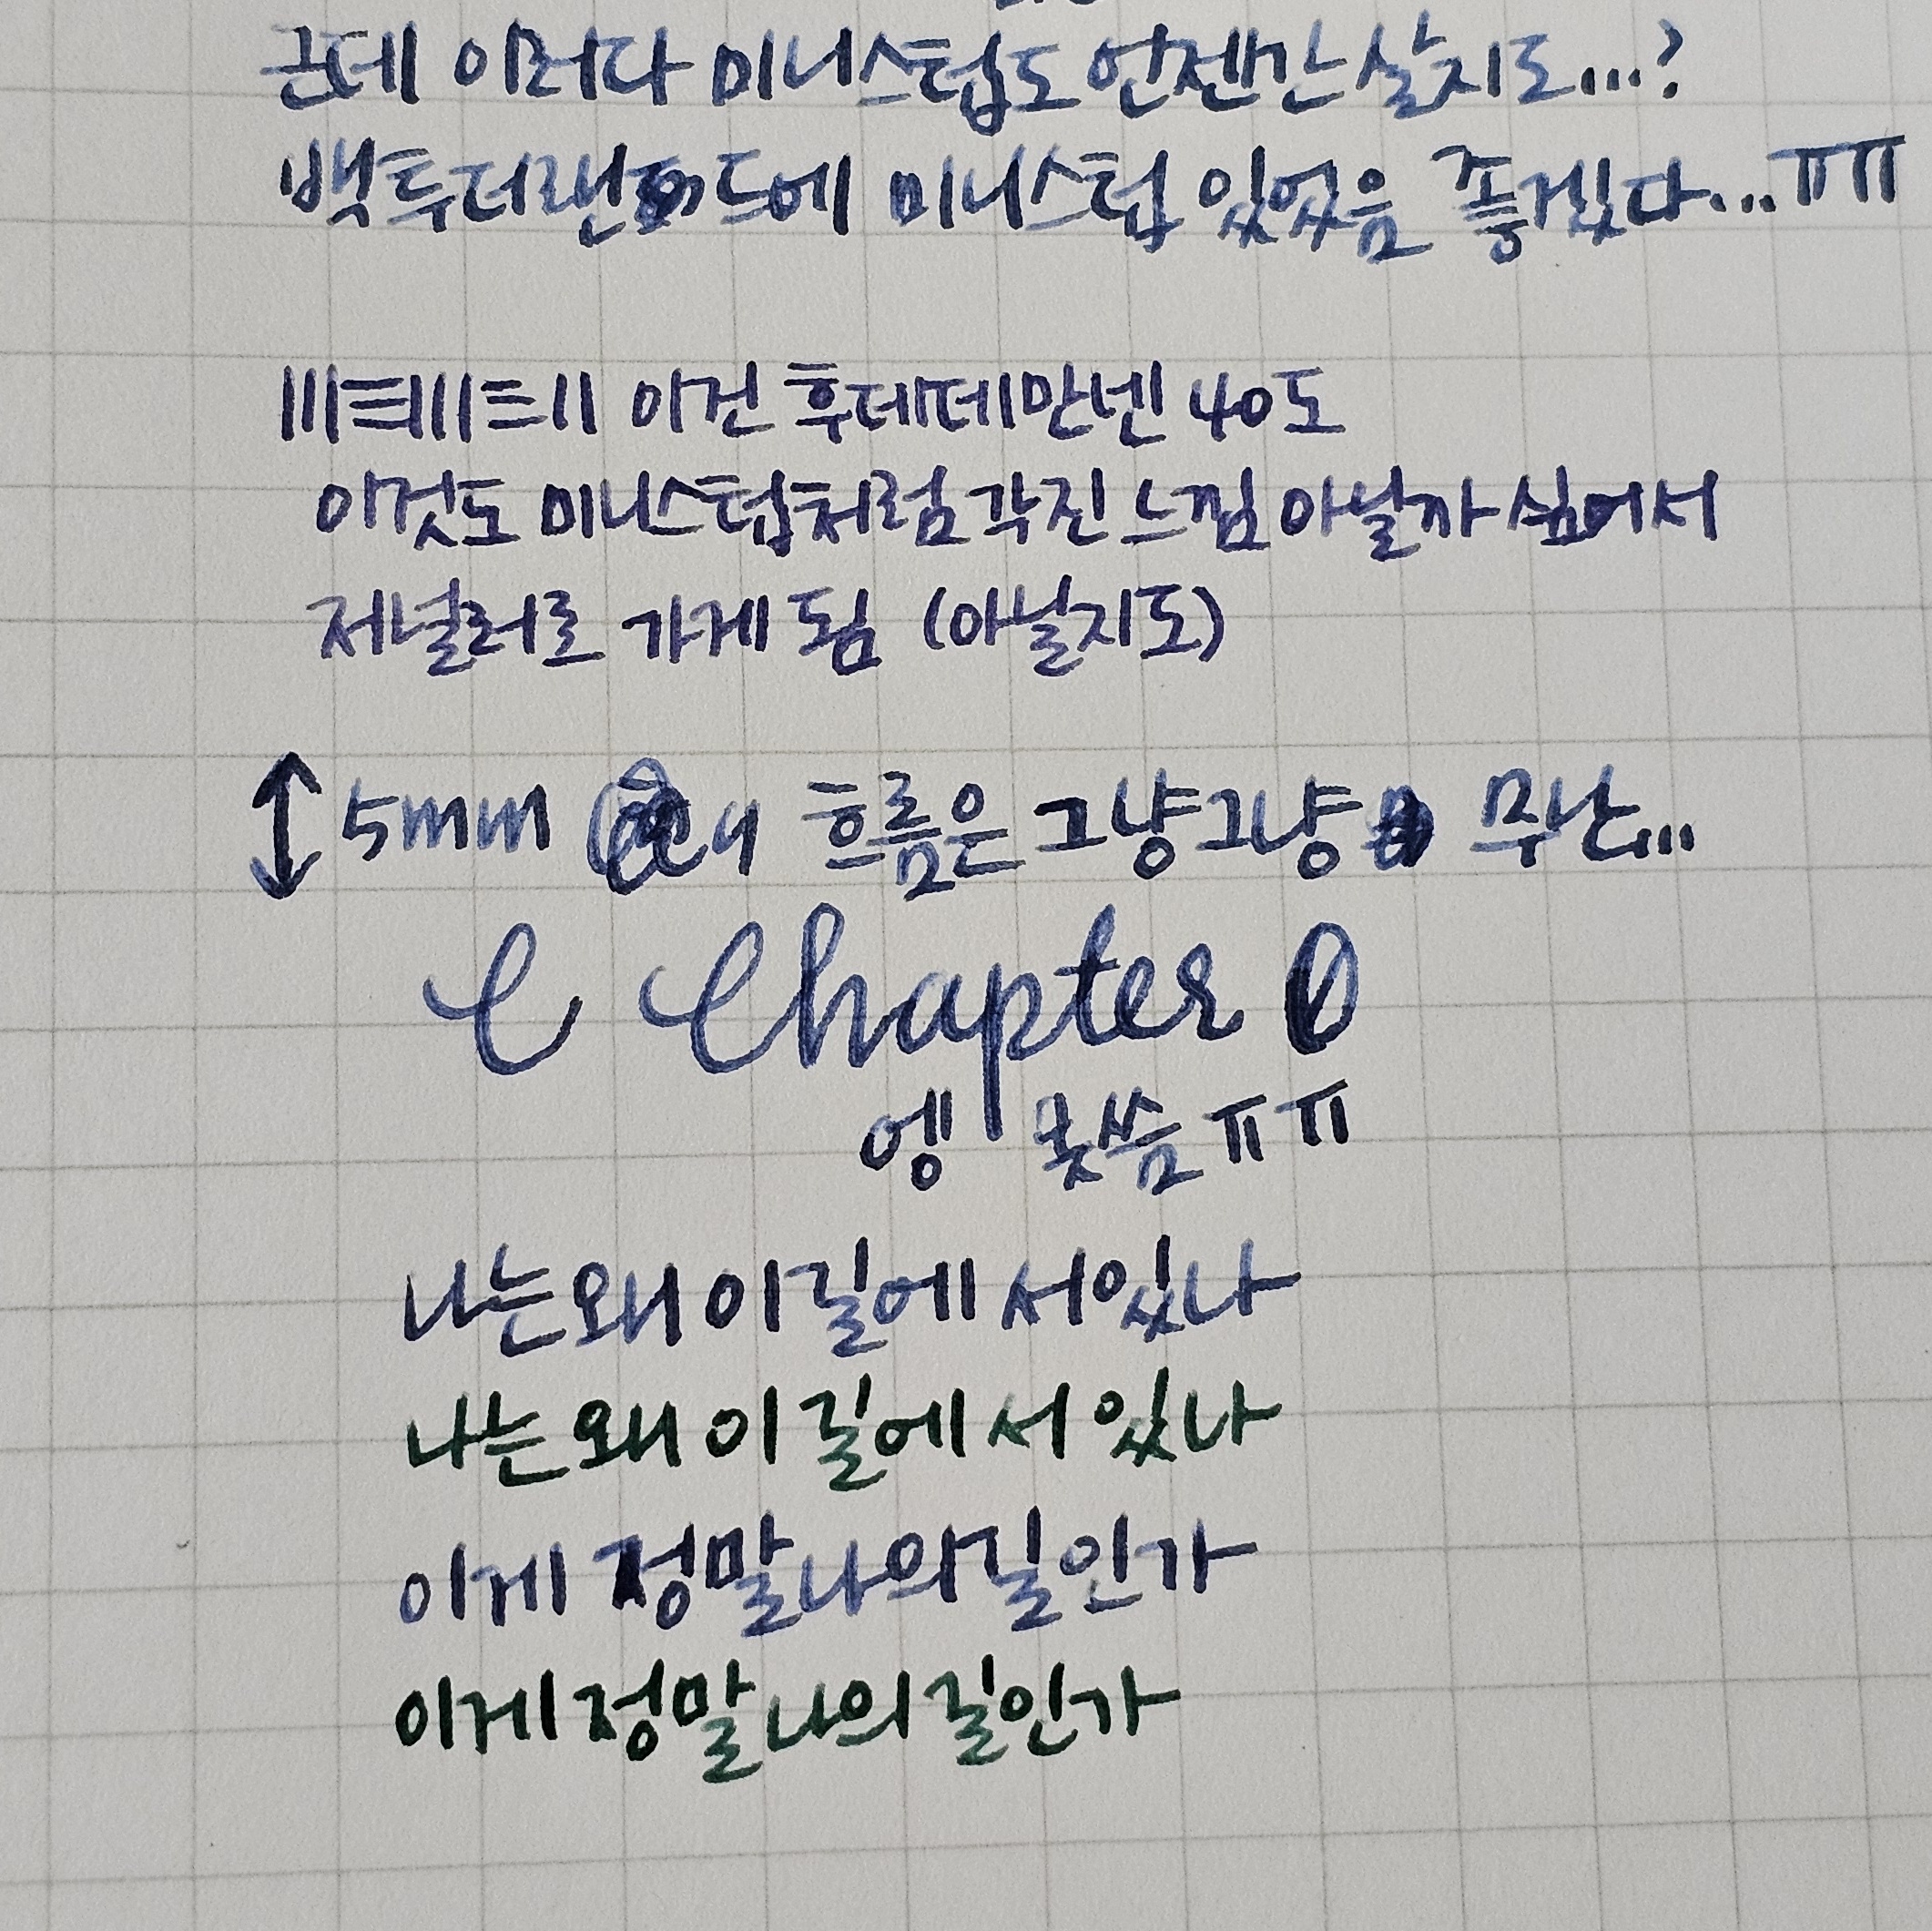 근데 이러다 미니스텁도 언젠간 살지도...?
백투더랜드에 미니스텁 있었음 좋겠다...ㅠㅠ
이건 후데데만넨 40도
이것도 미니스텁처럼 각진 느낌 아닐까 싶어서
저널러로 가게 됨 (아닐지도)
5mm 흐름은 그냥그냥 무난...
C Chapter 0
엥 못씀 ㅠㅠ
나는 왜 이 길에 서있나
나는 왜 이 길에 서 있나
이게 정말 나의 길인가
이게 정말 나의 길인가